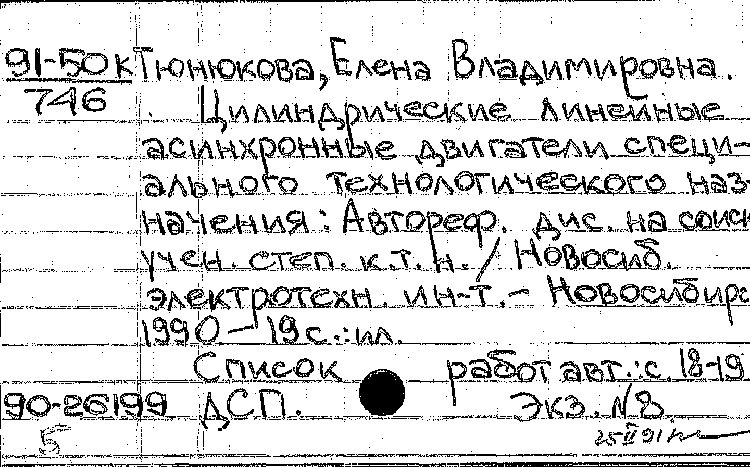 91-50к Тюнюкова, Елена Владимировна.
746 Цилиндрические линейные
асинхронные двигатели специ-
ального технологического наз-
начения: Автореф. дис. на соиск
учен. степ. к.т.н. / Новосиб.
электротехн. ин-т. - Новосибирс
1990 - 19 с.: ил.
Список работ авт.: с. 18-19
90-26199 ДСП. Экз. №8.
5
25 II 91